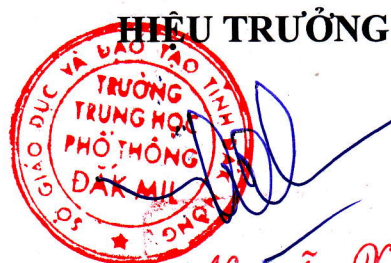 HIỆU TRƯỞNG
SỞ GIÁO DỤC VÀ ĐÀO TẠO TỈNH ĐẮK NÔNG
TRƯỜNG
TRUNG HỌC
PHỔ THÔNG
ĐĂK MIL